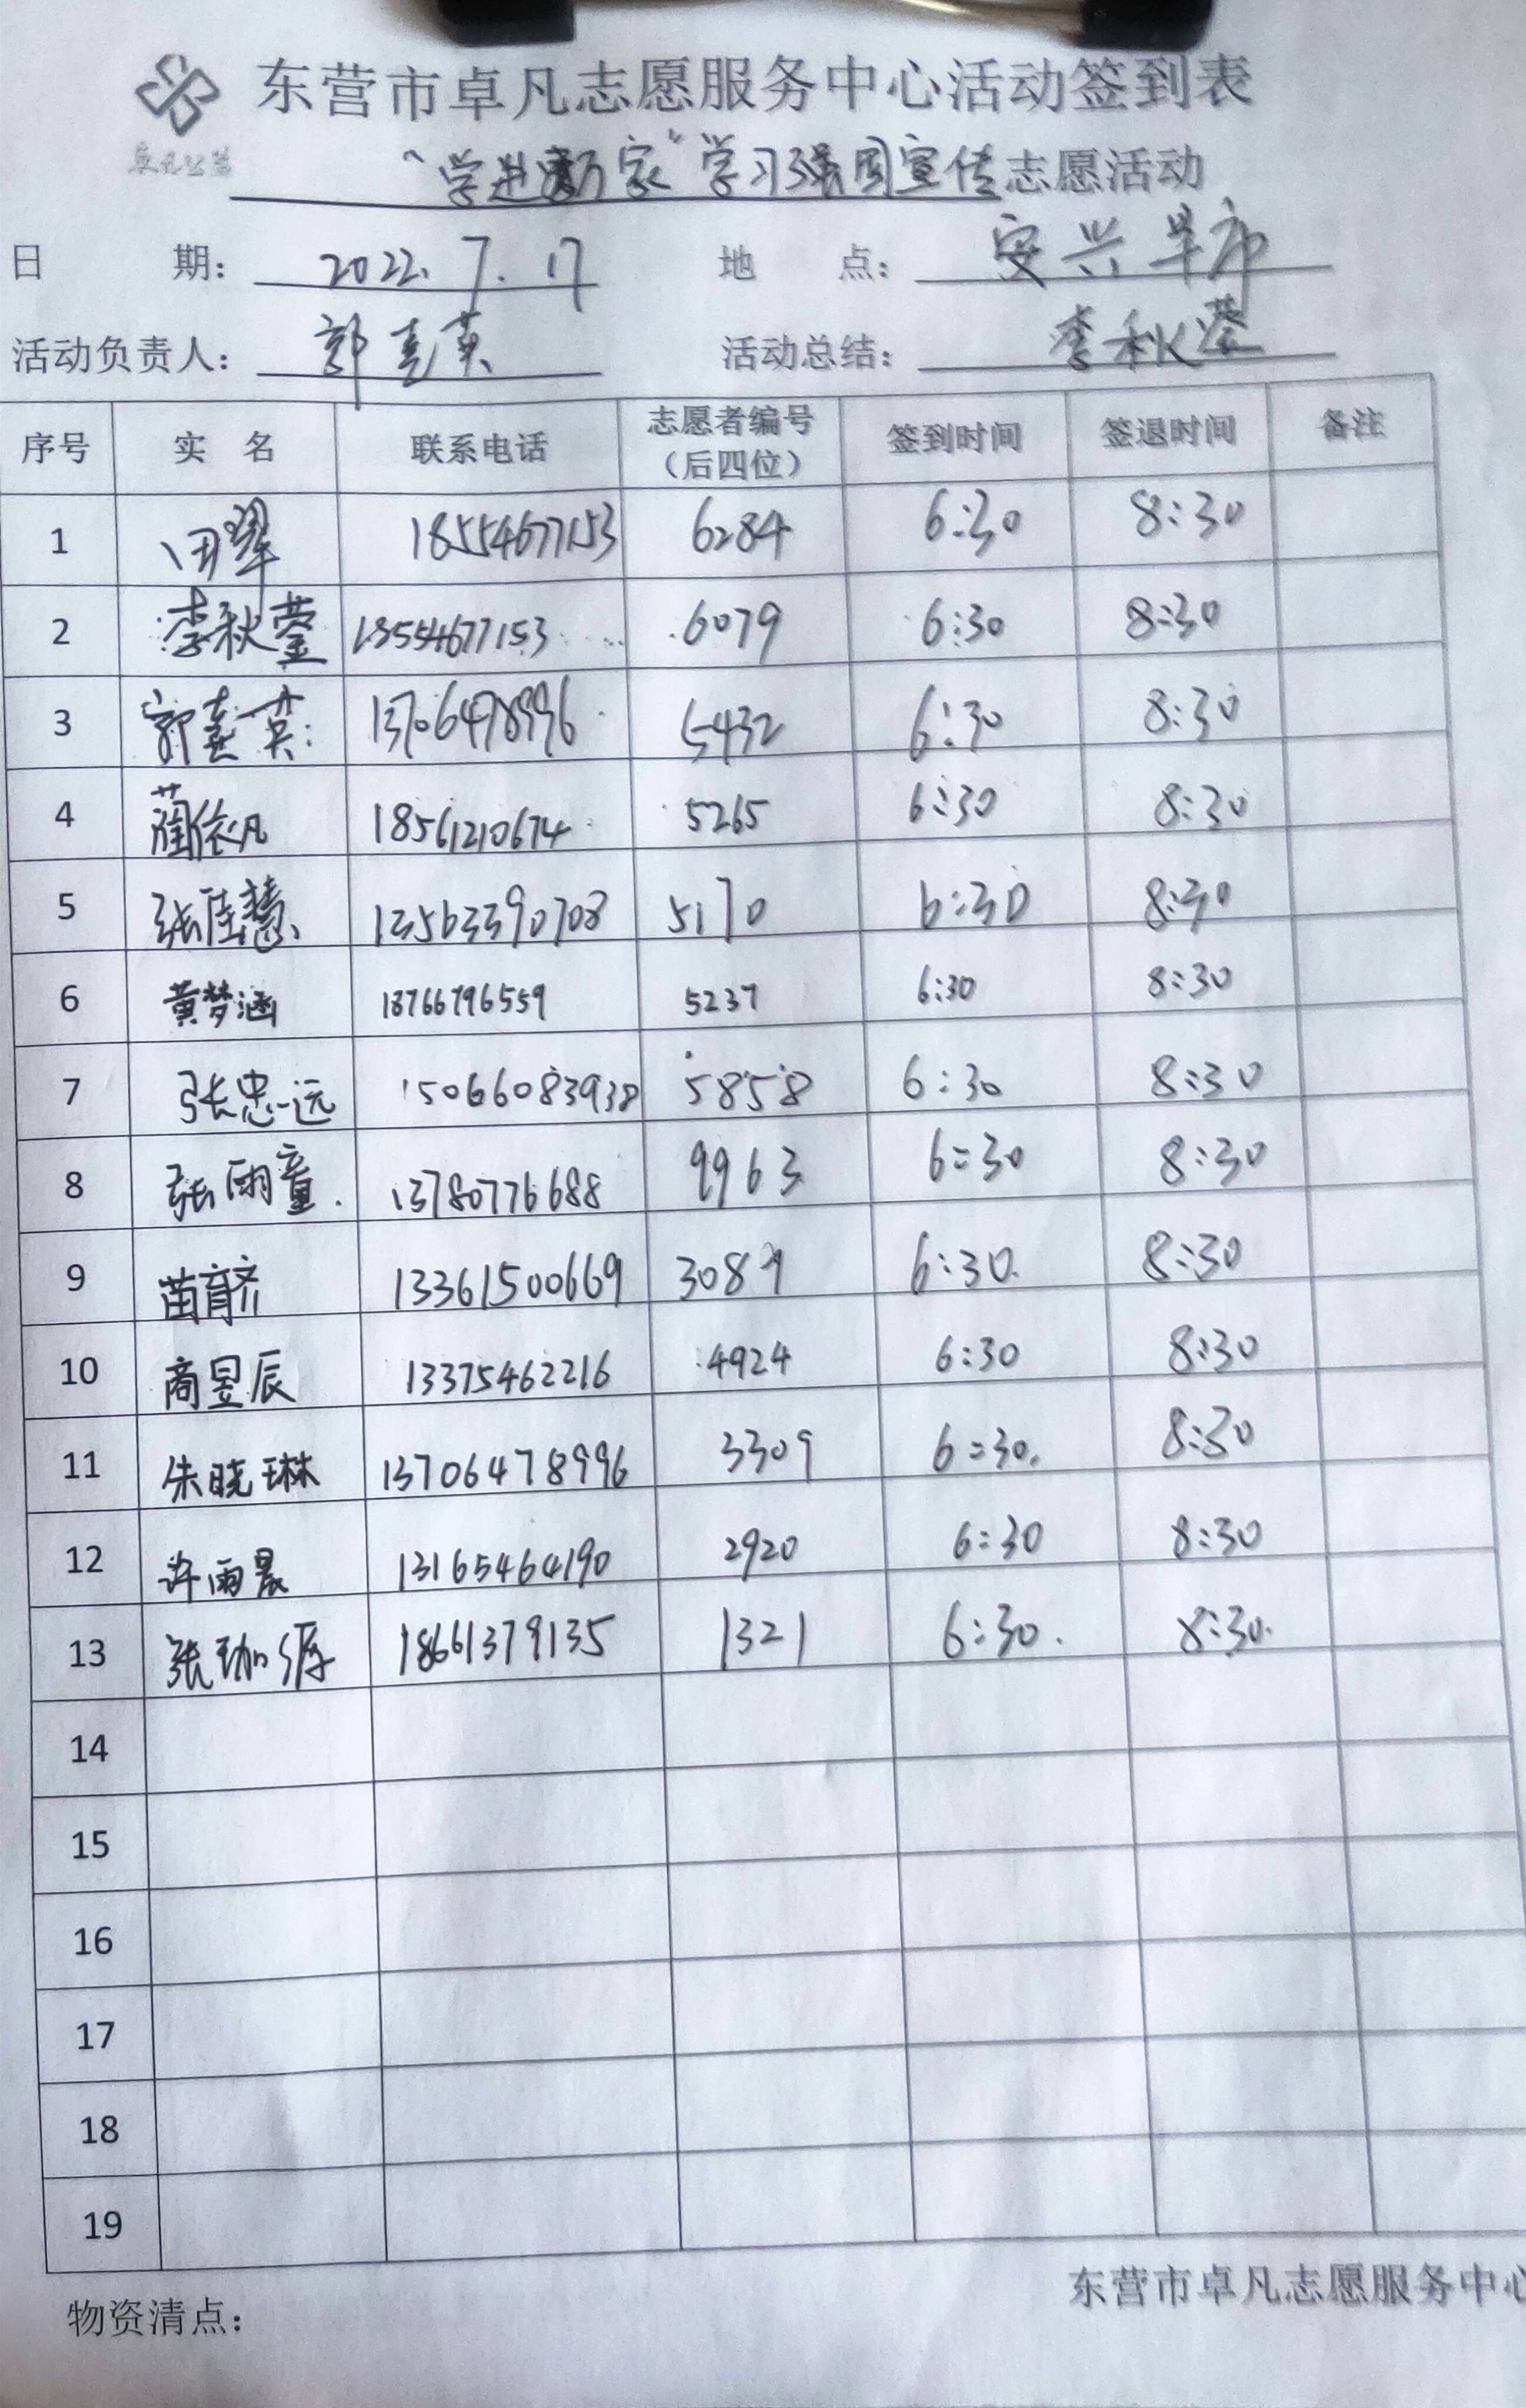 东营市卓凡志愿服务中心活动签到表
卓凡公益
“学进万家”学习强国宣传志愿活动
日 期： 2022.7.17 地 点： 安兴早市
活动负责人： 郭喜英 活动总结： 李秋莹
序号 实 名 联系电话 志愿者编号（后四位） 签到时间 签退时间 备注
1 田翠 18554677153 6284 6:30 8:30
2 李秋莹 18554677153 6079 6:30 8:30
3 郭喜英 13706478996 5432 6:30 8:30
4 蔺依凡 18561210674 5265 6:30 8:30
5 张佳慧 13563390708 5170 6:30 8:30
6 黄梦涵 18766796559 5237 6:30 8:30
7 张忠远 15066083938 5858 6:30 8:30
8 张雨童 13780776688 9963 6:30 8:30
9 苗育齐 13361500669 3089 6:30 8:30
10 商昱辰 13375462216 4924 6:30 8:30
11 朱晓琳 13706478996 3309 6:30 8:30
12 许雨晨 13165464190 2920 6:30 8:30
13 张珈源 18661379135 1321 6:30 8:30
14
15
16
17
18
19
东营市卓凡志愿服务中心
物资清点：